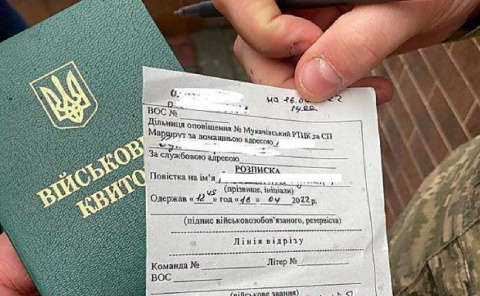 ВІЙСЬКОВО
КВИТО
на 16.04.22
14:00
ВОС №
Дільниця оповіщення № Мукачівський РТЦК за СП
Маршрут за домашньою адресою
За службовою адресою
РОЗПИСКА
Повістка на ім'я
(прізвище, ініціали)
Одержав «12 45» год «16» 04 2022 г.
(підпис військовозобов'язаного, резервіста)
Лінія відрізу
Команда № Літер №
ВОС
(військове звання)